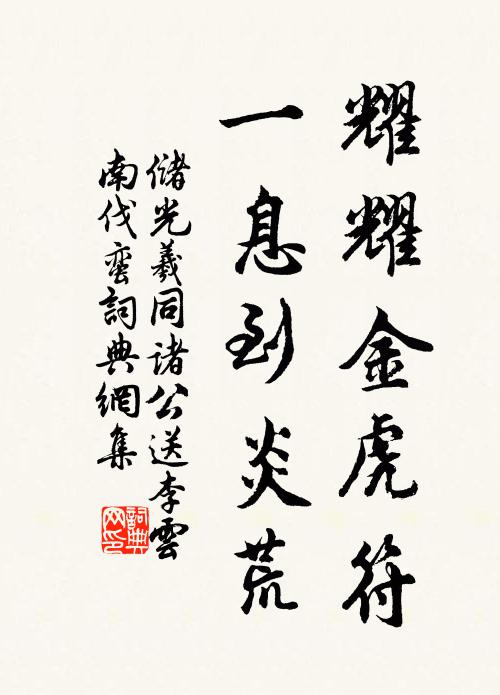 耀耀金虎符
一息到炎荒
儲光羲同諸公送李雲
南伐蠻詞典網集
詞典
网印